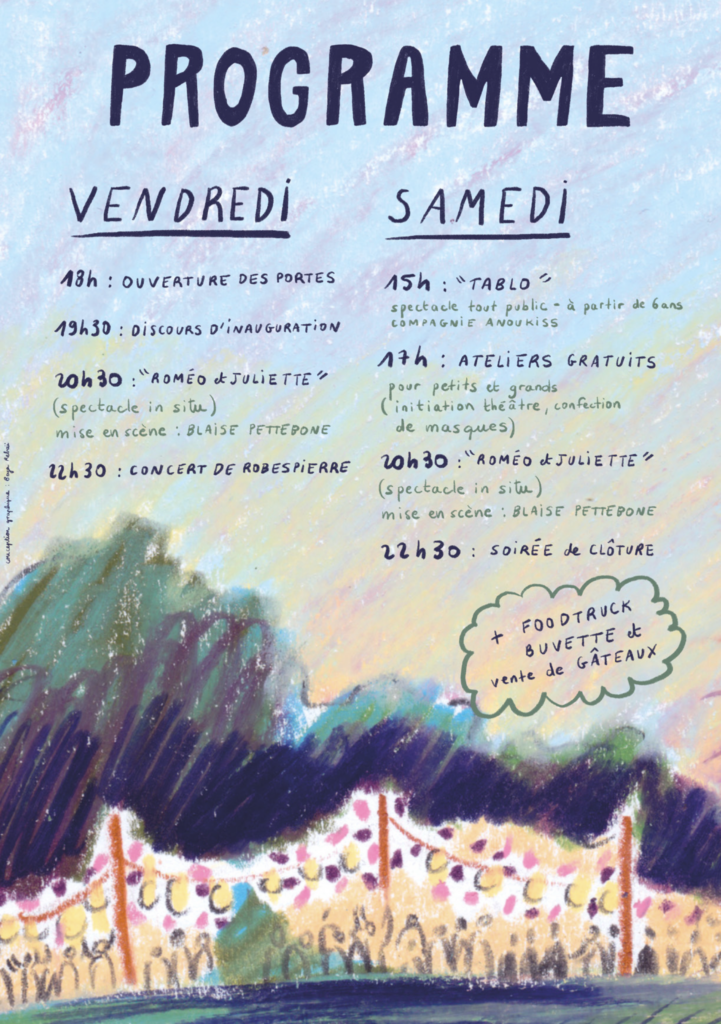 PROGRAMME
VENDREDI
18h : OUVERTURE DES PORTES
19H30 : DISCOURS D'INAUGURATION
20h30 : "ROMÉO et JULIETTE"
(spectacle in situ)
mise en scène : BLAISE PETTEBONE
22H30 : CONCERT DE ROBESPIERRE
SAMEDI
15h : "TABLO"
spectacle tout public - à partir de 6 ans
COMPAGNIE ANOUKISS
17h : ATELIERS GRATUITS
pour petits et grands
(initiation théâtre, confection
de masques)
20h30 : "ROMÉO et JULIETTE"
(spectacle in situ)
mise en scène : BLAISE PETTEBONE
22h30 : SOIRÉE de CLÔTURE
+ FOODTRUCK
BUVETTE et
vente de GÂTEAUX
conception graphique :